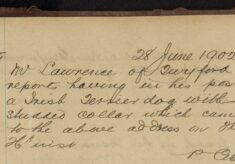 28 June 1902
Mr Lawrence of Twyford
report, having in his pos
a Irish Terrier dog with
studded collar which cam
to the above address on th
inst
P. C